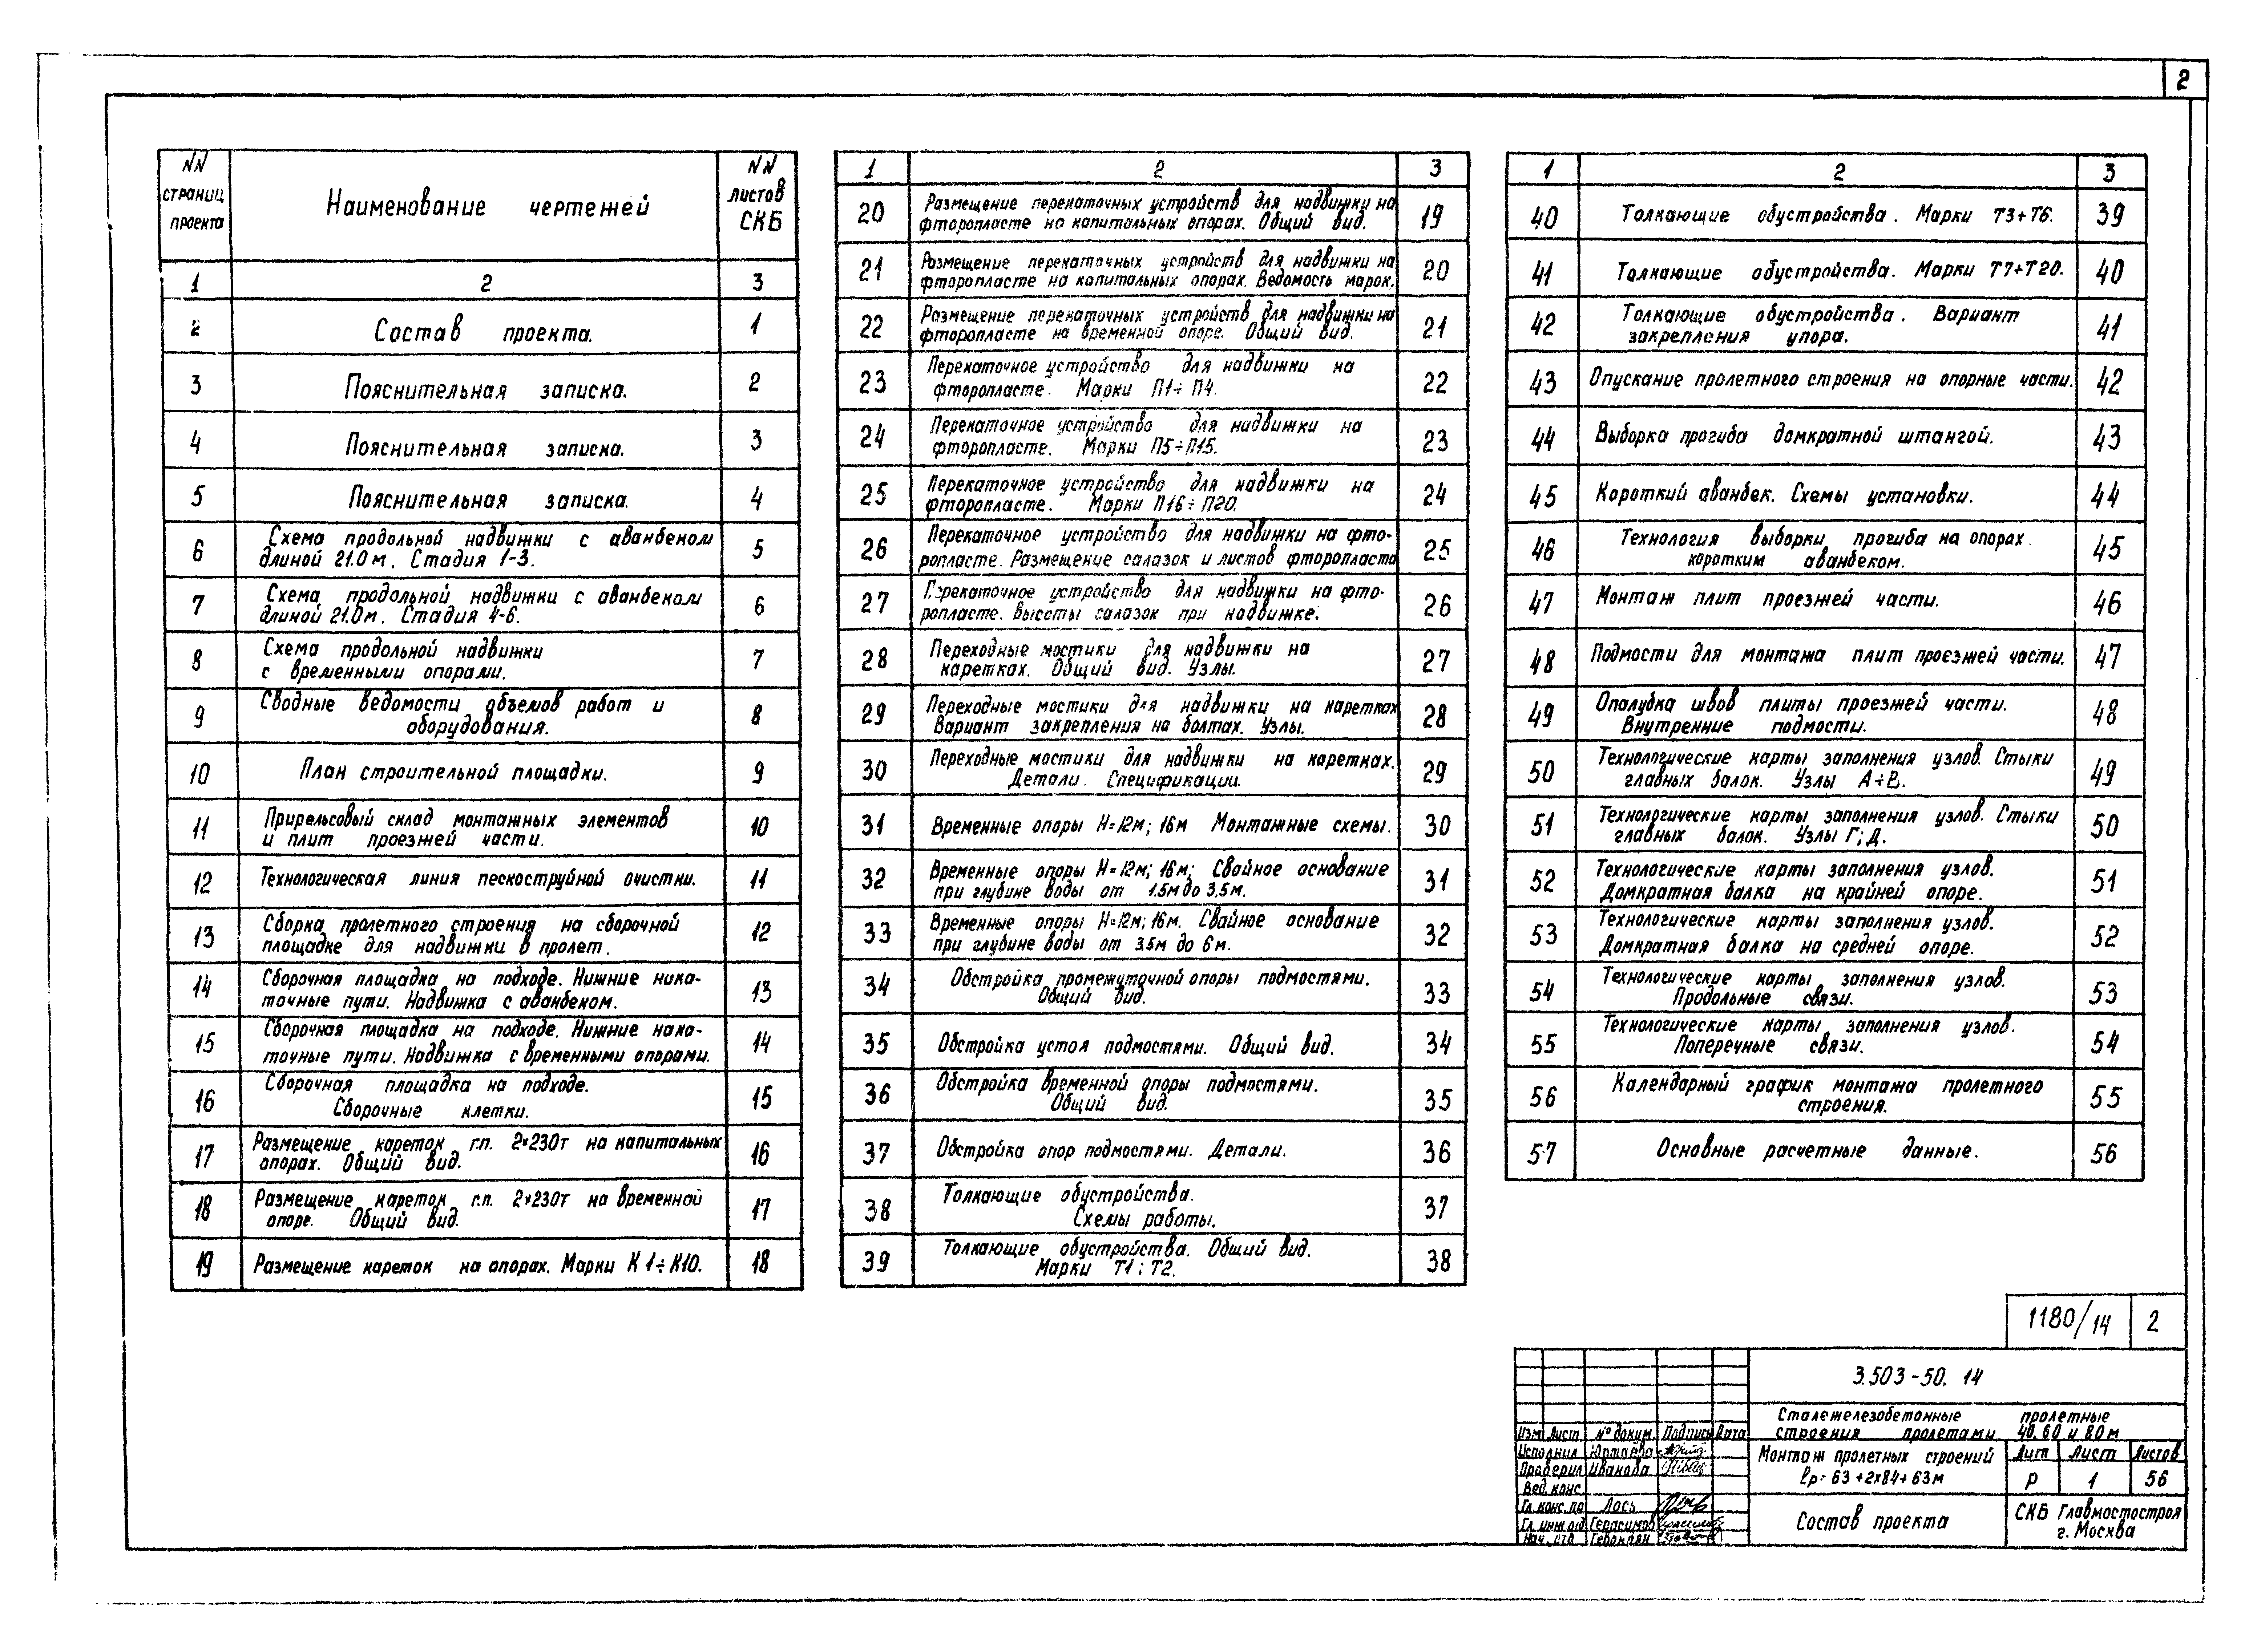 2
NN страниц проекта | Наименование чертежей | NN листов СКБ
1 | 2 | 3
2 | Состав проекта. | 1
3 | Пояснительная записка. | 2
4 | Пояснительная записка. | 3
5 | Пояснительная записка. | 4
6 | Схема продольной надвижки с аванбеком
длиной 21.0 м. Стадия 1-3. | 5
7 | Схема продольной надвижки с аванбеком
длиной 21.0 м. Стадия 4-6. | 6
8 | Схема продольной надвижки
с временными опорами. | 7
9 | Сводные ведомости объемов работ и
оборудования. | 8
10 | План строительной площадки. | 9
11 | Прирельсовый склад монтажных элементов
и плит проезжей части. | 10
12 | Технологическая линия пескоструйной очистки. | 11
13 | Сборка пролетного строения на сборочной
площадке для надвижки в пролет. | 12
14 | Сборочная площадка на подходе. Нижние нака-
точные пути. Надвижка с аванбеком. | 13
15 | Сборочная площадка на подходе. Нижние нака-
точные пути. Надвижка с временными опорами. | 14
16 | Сборочная площадка на подходе.
Сборочные клетки. | 15
17 | Размещение кареток г.п. 2×230т на капитальных
опорах. Общий вид. | 16
18 | Размещение кареток г.п. 2×230т на временной
опоре. Общий вид. | 17
19 | Размещение кареток на опорах. Марки К1÷К10. | 18
1 | 2 | 3
20 | Размещение перекаточных устройств для надвижки на
фторопласте на капитальных опорах. Общий вид. | 19
21 | Размещение перекаточных устройств для надвижки на
фторопласте на капитальных опорах. Ведомость марок. | 20
22 | Размещение перекаточных устройств для надвижки на
фторопласте на временной опоре. Общий вид. | 21
23 | Перекаточное устройство для надвижки на
фторопласте. Марки П1÷П4. | 22
24 | Перекаточное устройство для надвижки на
фторопласте. Марки П5÷П15. | 23
25 | Перекаточное устройство для надвижки на
фторопласте. Марки П16÷П20. | 24
26 | Перекаточное устройство для надвижки на фто-
ропласте. Размещение салазок и листов фторопласта | 25
27 | Перекаточное устройство для надвижки на фто-
ропласте. Высоты салазок при надвижке. | 26
28 | Переходные мостики для надвижки на
каретках. Общий вид. Узлы. | 27
29 | Переходные мостики для надвижки на каретках
Вариант закрепления на болтах. Узлы. | 28
30 | Переходные мостики для надвижки на каретках.
Детали. Спецификации. | 29
31 | Временные опоры Н=12м; 16м Монтажные схемы. | 30
32 | Временные опоры Н=12м; 16м; Свайное основание
при глубине воды от 1.5м до 3.5м. | 31
33 | Временные опоры Н=12м; 16м. Свайное основание
при глубине воды от 3.5м до 6м. | 32
34 | Обстройка промежуточной опоры подмостями.
Общий вид. | 33
35 | Обстройка устоя подмостями. Общий вид. | 34
36 | Обстройка временной опоры подмостями.
Общий вид. | 35
37 | Обстройка опор подмостями. Детали. | 36
38 | Толкающие обустройства.
Схемы работы. | 37
39 | Толкающие обустройства. Общий вид.
Марки Т1; Т2. | 38
1 | 2 | 3
40 | Толкающие обустройства. Марки Т3÷Т6. | 39
41 | Толкающие обустройства. Марки Т7÷Т20. | 40
42 | Толкающие обустройства. Вариант
закрепления упора. | 41
43 | Опускание пролетного строения на опорные части. | 42
44 | Выборка прогиба домкратной штангой. | 43
45 | Короткий аванбек. Схемы установки. | 44
46 | Технология выборки прогиба на опорах
коротким аванбеком. | 45
47 | Монтаж плит проезжей части. | 46
48 | Подмости для монтажа плит проезжей части. | 47
49 | Опалубка швов плиты проезжей части.
Внутренние подмости. | 48
50 | Технологические карты заполнения узлов. Стыки
главных балок. Узлы А÷В. | 49
51 | Технологические карты заполнения узлов. Стыки
главных балок. Узлы Г; Д. | 50
52 | Технологические карты заполнения узлов.
Домкратная балка на крайней опоре. | 51
53 | Технологические карты заполнения узлов.
Домкратная балка на средней опоре. | 52
54 | Технологические карты заполнения узлов.
Продольные связи. | 53
55 | Технологические карты заполнения узлов.
Поперечные связи. | 54
56 | Календарный график монтажа пролетного
строения. | 55
57 | Основные расчетные данные. | 56
1180/14 | 2
3.503-50. 14
Сталежелезобетонные пролетные
строения пролетами 40, 60 и 80 м
Изм Лист № докум. Подпись Дата
Исполнил Юртаева
Проверил Иванова
Вед. конс.
Гл. конс. пр Лось
Гл. инж. отд Герасимов
Нач. отд
Монтаж пролетных строений
ℓр= 63+2×84+63м
Лит Лист Листов
Р 1 56
Состав проекта
СКБ Главмостостроя
г. Москва